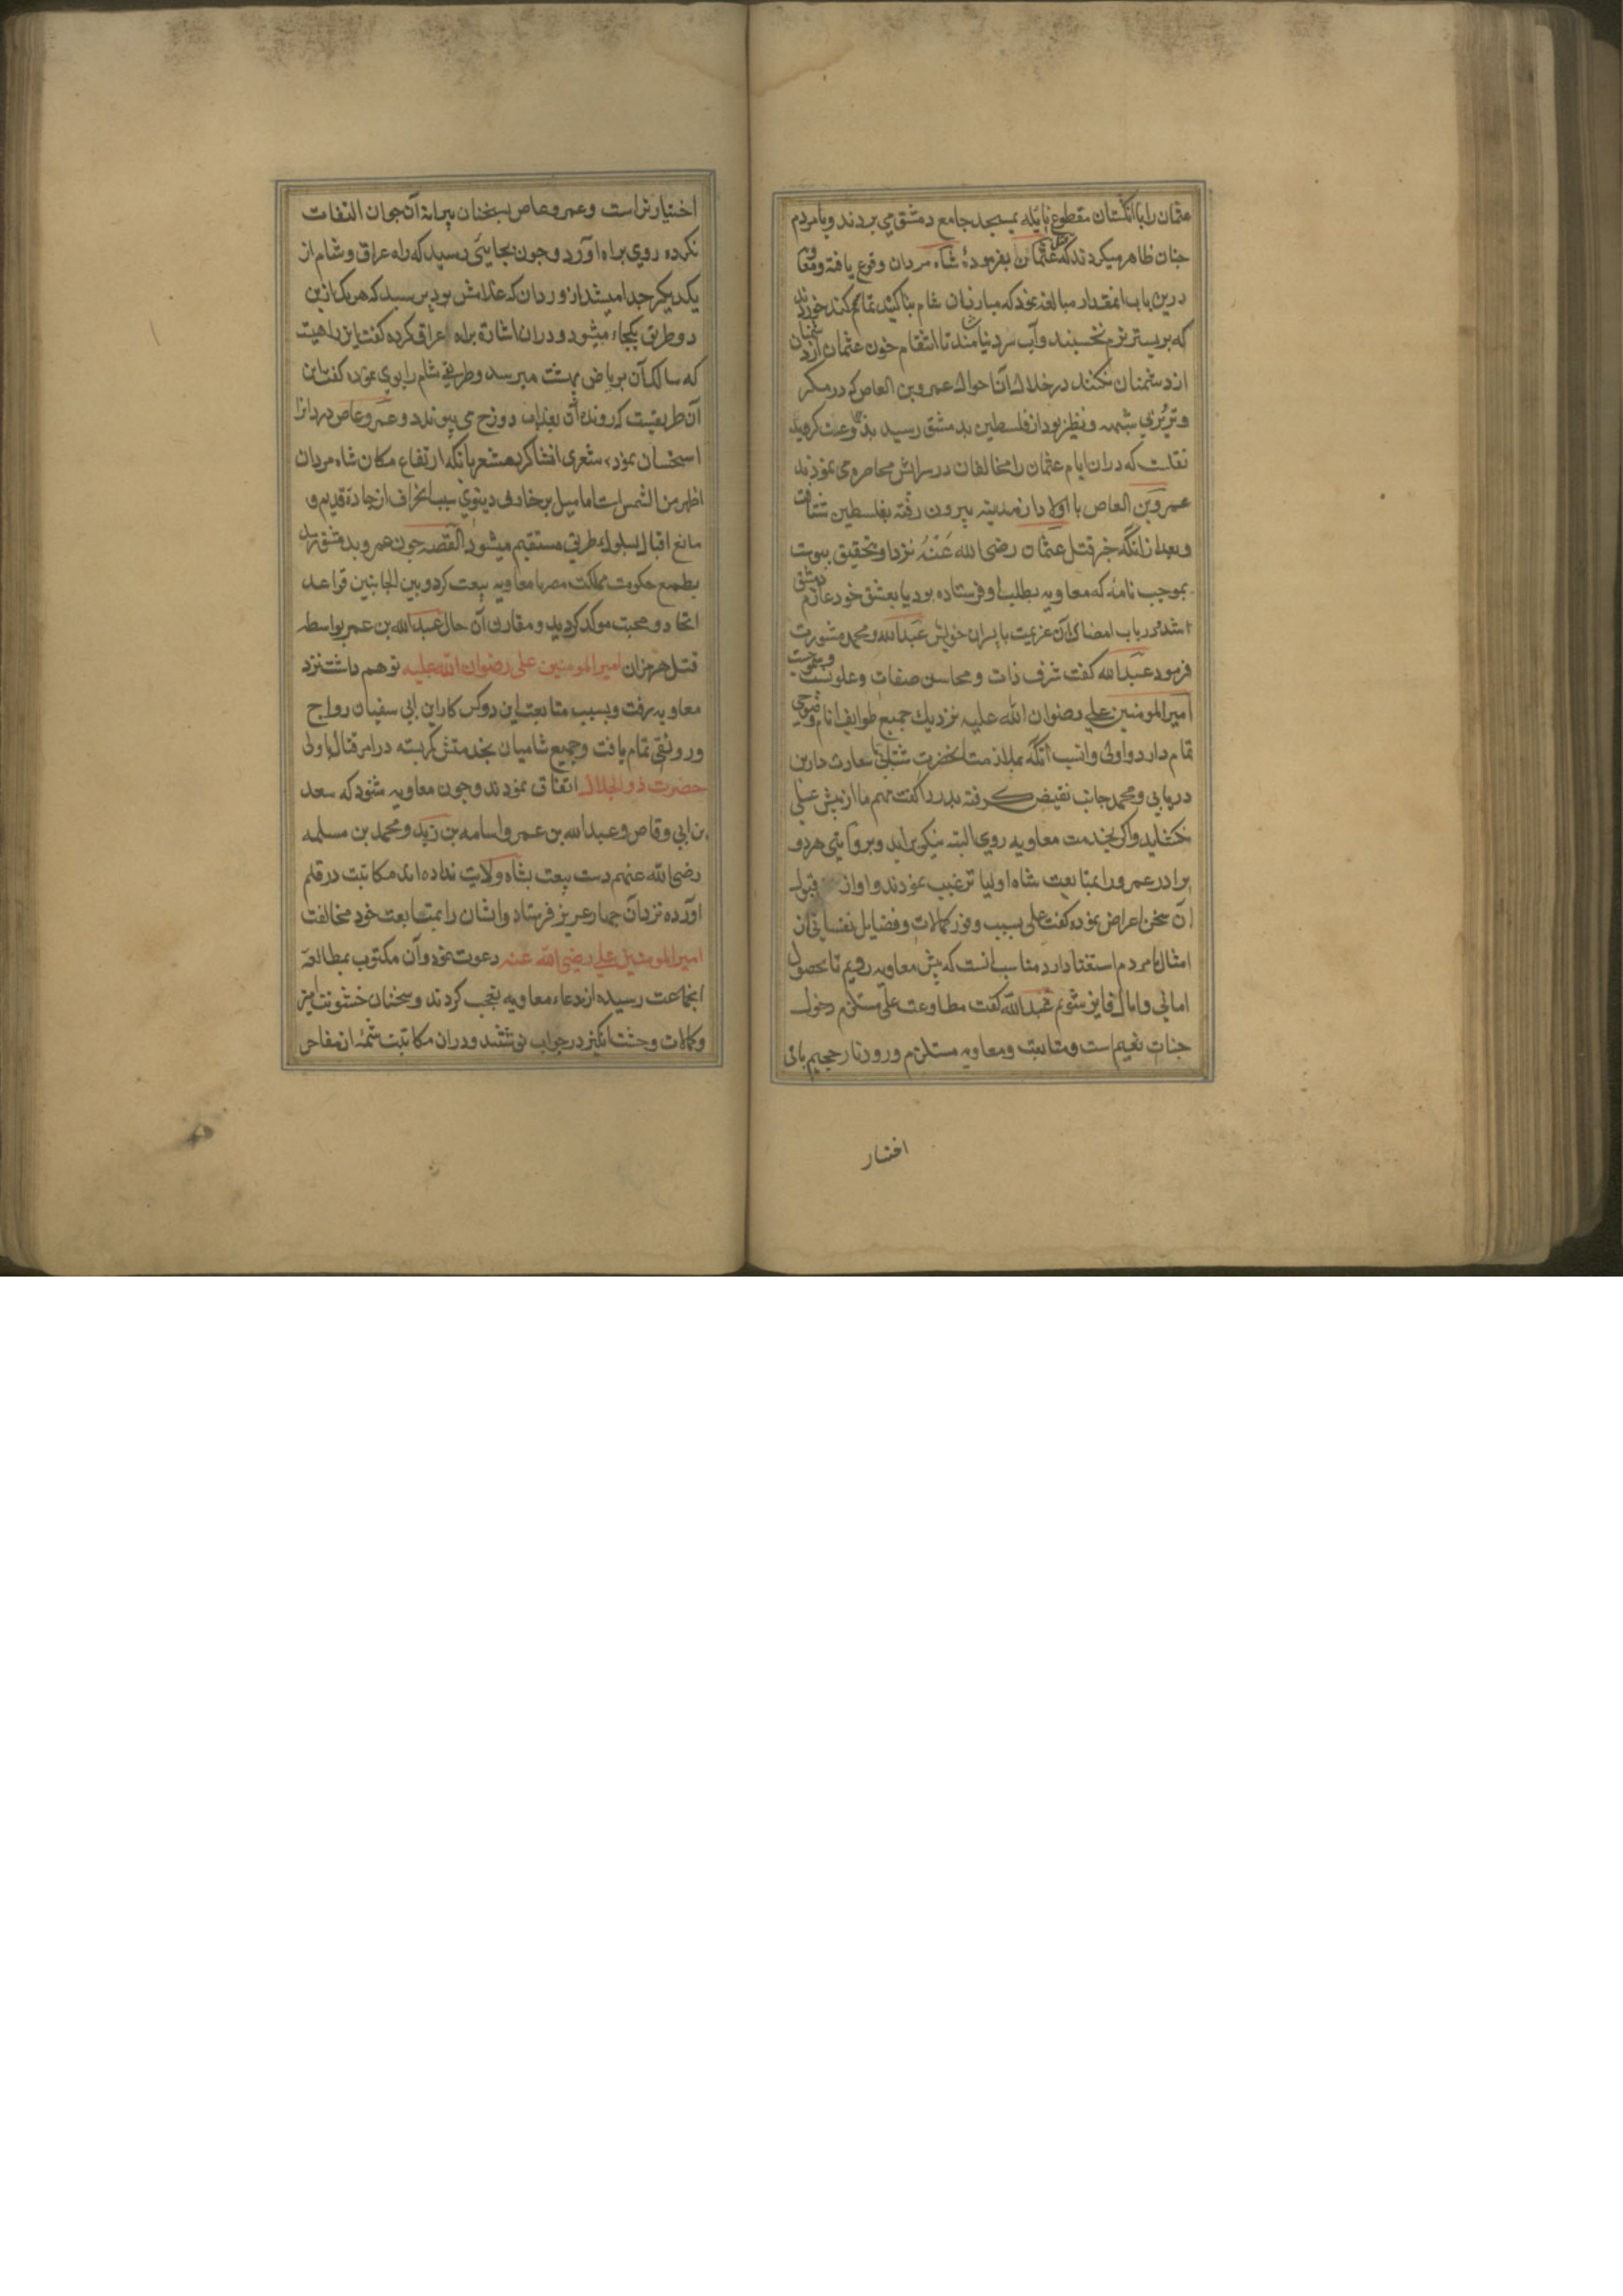 عثمان را با انکشتان مقطوع نایله بمسجد جامع دمشق می بردند و با مردم
جنان ظاهر میکردند که قتل عثمان بفرمودهٔ شاه مردان وقوع یافته و معاویه
درین باب انمقدار مبالغه نمود که مبارزان شام بتاکید تمام سوکند خوردند
که بر بستر نرم نخسبند و آب سرد نیاشامند تا انتقام خون عثمان از دشمنان
از دشمنان نکشند در خلال آن احوال عمرو بن العاص که در مکر
و تزویر شبیه و نظیر نبود از فلسطین بدمشق رسید
نقلست که دران ایام عثمان را مخالفان در سرایش محاصره می نمودند
عمرو بن العاص با اولاد از مدینه بیرون رفته بفلسطین شتافت
و بعد از انکه خبر قتل عثمان رضی الله عَنْهُ نزد او بتحقیق بیوست
بموجب نامهٔ که معاویه بطلب او فرستاده بود عازم دمشق
شد و در باب امضاء آن عزیمت با پسران خویش عبدالله و محمد مشورت
فرمود عبدالله کفت شرف ذات و محاسن صفات و علو نسب
امیرالمومنین علی رضوان الله علیه نزدیك جمیع طوایف انام وضوحی
تمام دارد و اولی و انسب آنکه بملازمت آنحضرت شتابی تا سعادت دارین
دریابی و محمد جانب نقیض کرفته بدر را کفت مهم ما از پیش علی
نکشاید و اکر بخدمت معاویه روی البته نیکو براید و بروایتی هر دو
برادر عمرو را بمتابعت شاه اولیا ترغیب نمودند و او از قبول
آن سخن اعراض نموده کفت علی بسبب وفور کمالات و فضایل نفسانی از
امثال ما مردم استغنا دارد مناسب آنست که پیش معاویه رویم تا بحصول
امانی و امال فایز شویم عبدالله کفت مطاوعت علی مستلزم دخول
جنات نعیم است و متابعت معاویه مستلزم ورود نار جحیم باقی
اختیار
اختیار تراست و عمرو عاص بسخنان پیرانهٔ آن جوان التفات
نکرده روی براه اورد و جون بجایئی رسید که راه عراق و شام از
یکدیکر جدا میشد از وردان که غلامش بود پرسید که هر یک ازین
دو طریق بکجا میشود وردان اشارة براه عراق کرده کفت این راهیست
که سالک آن بریاض بهشت میرسد و طریق شام را بوی نموده کفت این
آن طریقیست که رونده آن بعذاب دوزخ می پیوندد و عمرو عاص
استحسان نموده شعری انشا کرد مشعر بانکه ارتفاع مکان شاه مردان
اظهر من الشمس است اما میل بزخارف دنیوی سبب انحراف از جادهٔ قدیم و
مانع اقبال بسلوك طریق مستقیم میشود القصه جون عمرو بدمشق رسید
بطمع حکومت مملکت مصر با معاویه بیعت کرد و بین الجانبین قواعد
اتحاد و محبت موکد کردید و مقارن آن حال عبیدالله بن عمر بواسطه
قتل هرمزان امیرالمومنین علی رضوان الله علیه توهم داشت نزد
معاویه رفت و بسبب متابعت این دو کس کار ابن ابی سفیان رواج
و رونقی تمام یافت و جمیع شامیان بخدمتش کمر بسته در امر قتال با ولی
حضرت ذوالجلال اتفاق نمودند و جون معاویه شنود که سعد
بن ابی وقاص و عبدالله بن عمر و اسامه بن زید و محمد بن مسلمه
رضی الله عنهم دست بیعت بشاه ولایت نداده اند مکاتبت در قلم
اورده نزد آن جهار عزیز فرستاد و ایشان را بمتابعت خود مخالفت
امیرالمومنین علی رضی الله عنه دعوت نمود و آن مکتوب بمطالعهٔ
انجماعت رسیده از دعاء معاویه تعجب کردند و سخنان خشونت امیز
و کلمات وحشت انکیز در جواب نوشتند و دران مکاتبت شمهٔ از مفاخر